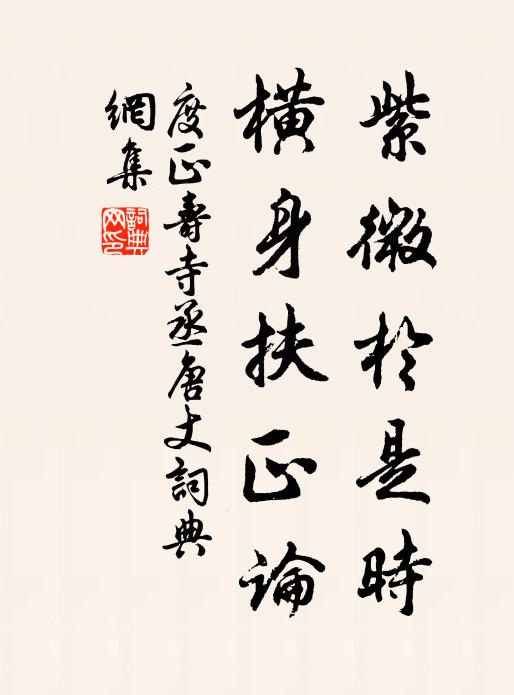 紫微於是時
橫身扶正論
度正壽寺丞唐丈詞典
網集
詞典
网印